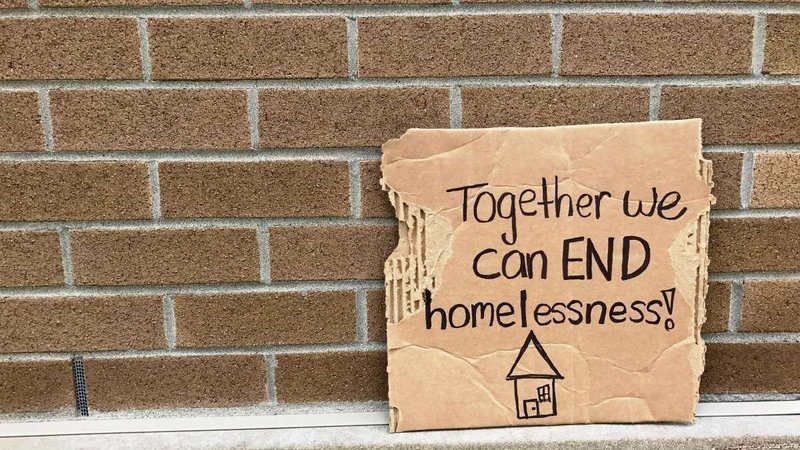 Together we
can END
homelessness!